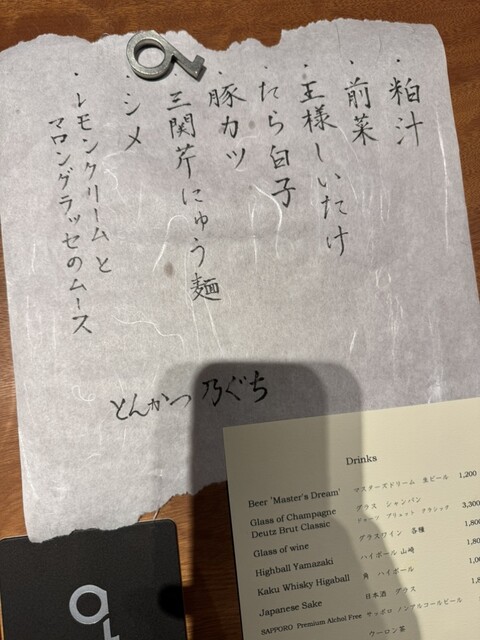 ・粕汁
・前菜
・王様しいたけ
・たら白子
・豚カツ
・三関芹にゅう麺
・シメ
・レモンクリームと
マロングラッセのムース
とんかつ 乃ぐち
Drinks
Beer 'Master's Dream' マスターズドリーム 生ビール 1,200
Glass of Champagne グラス シャンパン
Deutz Brut Classic ドゥーツ ブリュット クラシック 3,300
Glass of wine グラスワイン 各種 1,80
Highball Yamazaki ハイボール 山崎 1,80
Kaku Whisky Higaball 角 ハイボール 1,00
Japanese Sake 日本酒 グラス 1,8
SAPPORO Premium Alchol Free サッポロ ノンアルコールビール
ウーロン茶